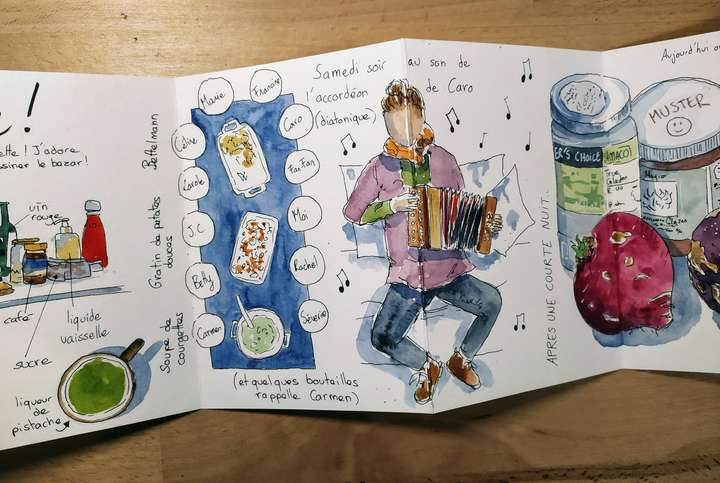 !
ette ! J'adore
ssiner le bazar !
vin
rouge
café
liquide
vaisselle
sucre
liqueur
de
pistache
Bettelmann
Gratin de patates
douces
Soupe de
courgettes
Marie
Francine
Céline
Caro
Lorde
FanFan
J.C
Moi
Betty
Rachel
Carmen
Séverine
(et quelques bouteilles
rappelle Carmen)
Samedi soir au son de
l'accordéon de Caro
(diatonique)
APRES UNE COURTE NUIT..
Aujourd'hui o
ER'S CHOICE
AMACO
MUSTER